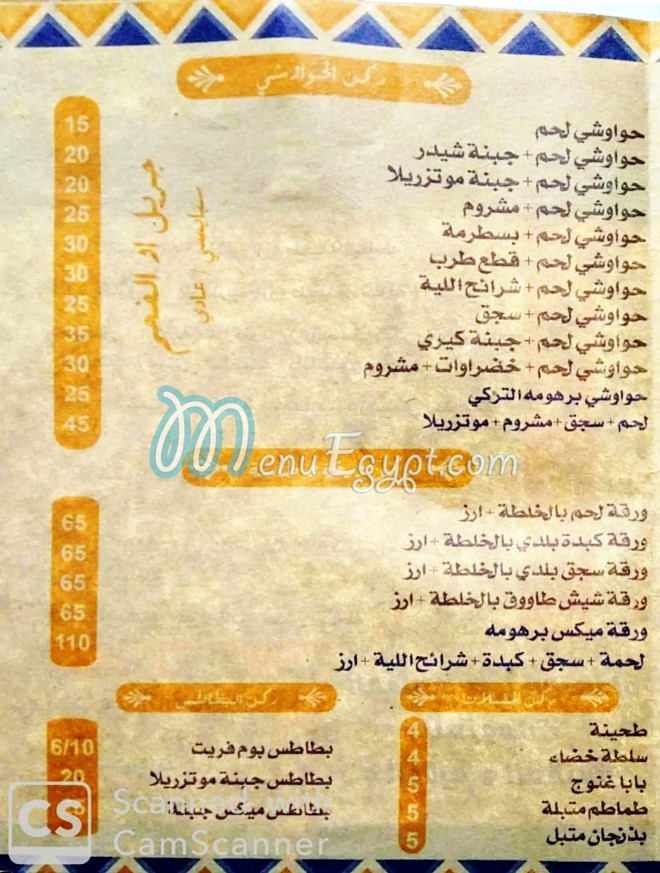 ركن الحواوشي
حواوشي لحم 15
حواوشي لحم + جبنة شيدر 20
حواوشي لحم + جبنة موتزريلا 20
حواوشي لحم + مشروم 25
حواوشي لحم + بسطرمة 30
حواوشي لحم + قطع طرب 30
حواوشي لحم + شرائح اللية 25
حواوشي لحم + سجق 35
حواوشي لحم + جبنة كيري 30
حواوشي لحم + خضراوات + مشروم 25
حواوشي برهومه التركي 45
لحم + سجق + مشروم + موتزريلا
جريل او الفحم
سبايسي / عادي
MenuEgypt.com
ورقة لحم بالخلطة + ارز 65
ورقة كبدة بلدي بالخلطة + ارز 65
ورقة سجق بلدي بالخلطة + ارز 65
ورقة شيش طاووق بالخلطة + ارز 65
ورقة ميكس برهومه 110
لحمة + سجق + كبدة + شرائح اللية + ارز
ركن السلطات
طحينة 4
سلطة خضاء 4
بابا غنوج 5
طماطم متبلة 5
بذنجان متبل 5
ركن البطاطس
بطاطس بوم فريت 6/10
بطاطس جبنة موتزريلا 20
بطاطس ميكس جبنبة
CS Scanned with
CamScanner